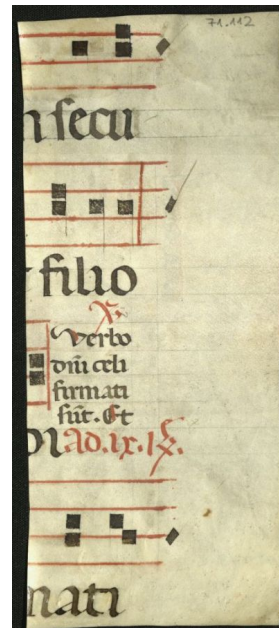 71.112
n secu
filio
℟.
Verbo
dn̄i celi
firmati
sūt. Et
ad. ix. ℟.
mati